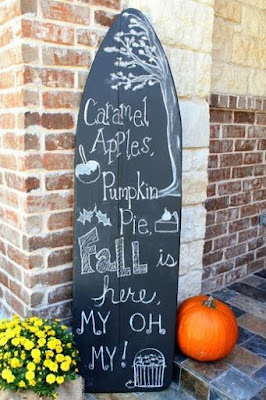 Caramel
Apples,
Pumpkin
Pie,
Fall is
here,
MY OH
MY!